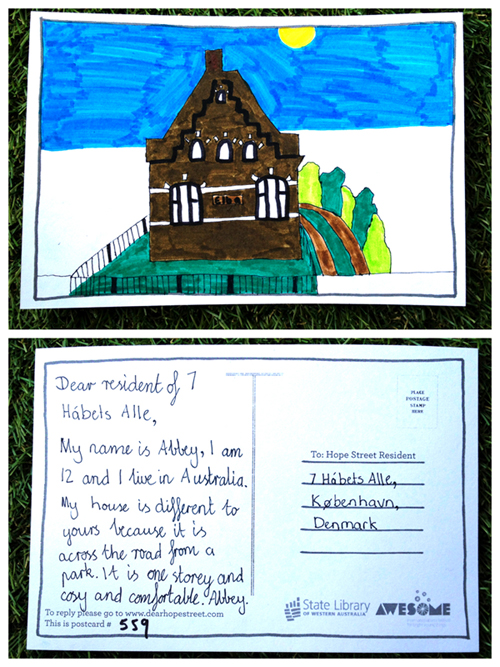 Elba
Dear resident of 7
Hábets Alle,
My name is Abbey, I am
12 and I live in Australia.
My house is different to
yours because it is
across the road from a
park. It is one storey and
cosy and comfortable. Abbey.
To reply please go to www.dearhopestreet.com
This is postcard # 559
PLACE
POSTAGE
STAMP
HERE
To: Hope Street Resident
7 Hábets Alle,
København,
Denmark
State Library
OF WESTERN AUSTRALIA
AWESOME